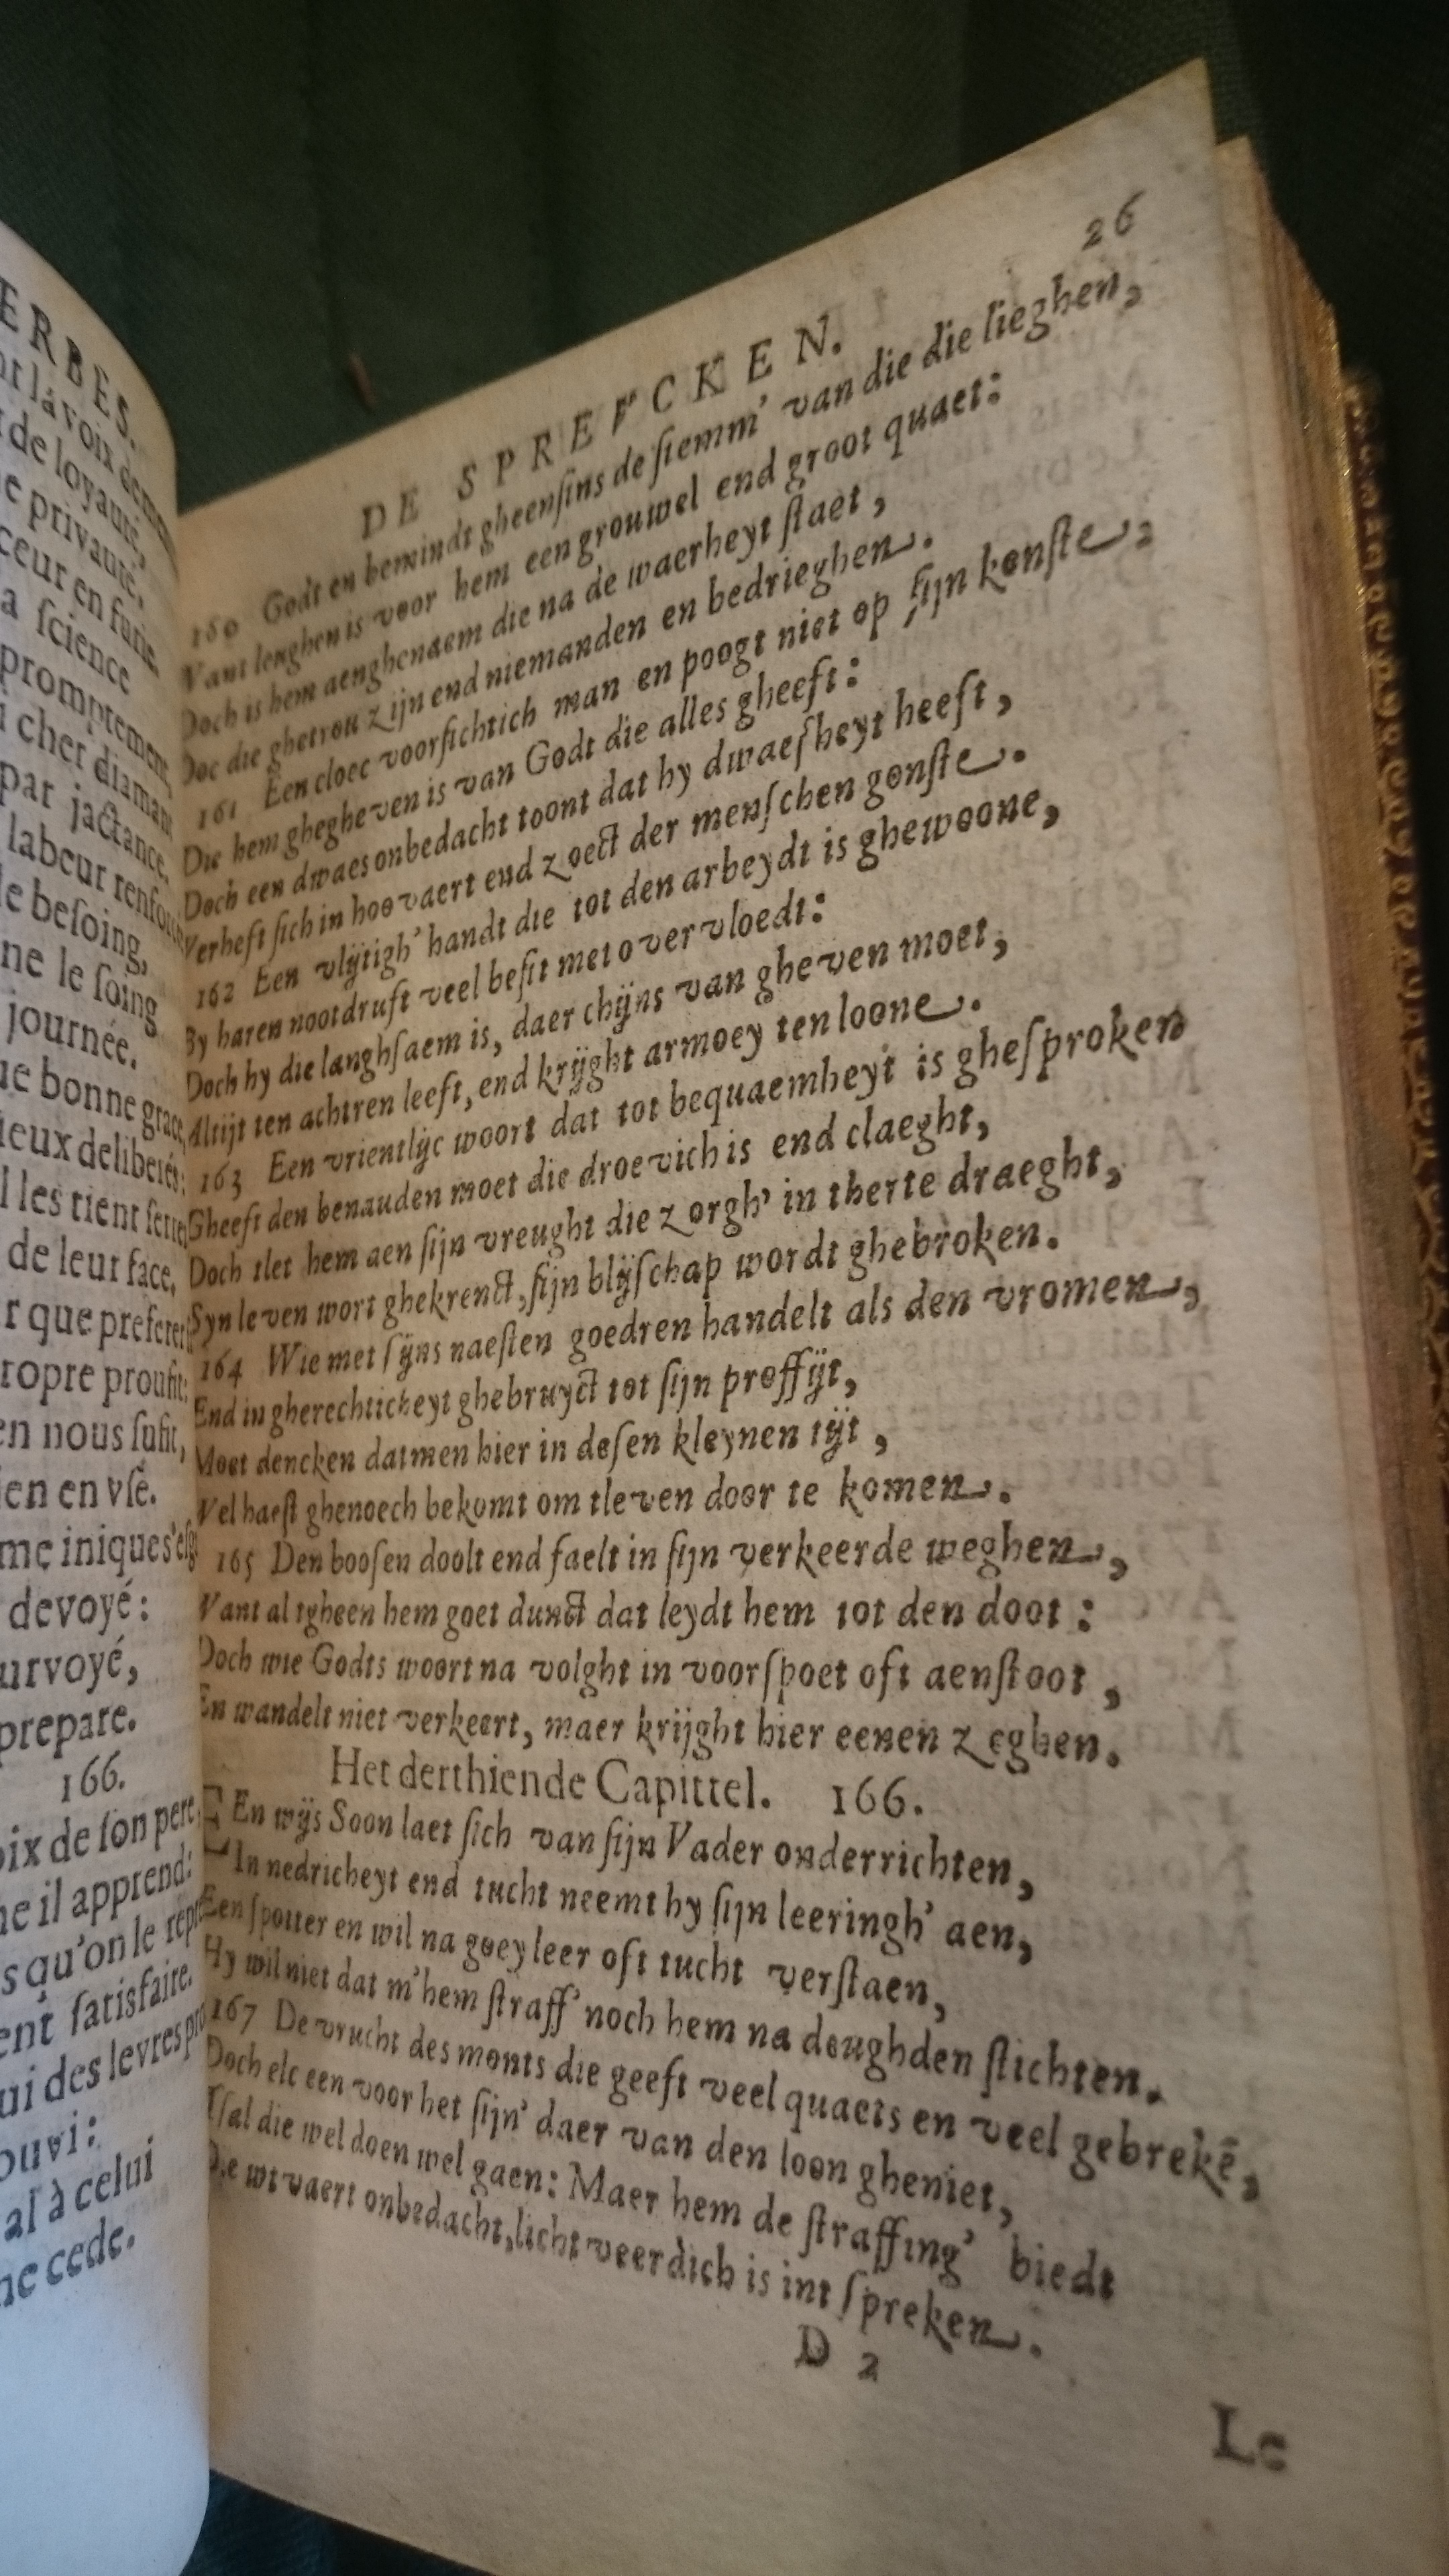 ERBES.
la voix
de loyauté,
privauté,
ceur en furie.
a ſcience
promptement,
cher diamant
par jactance.
labeur
le beſoing,
ne le ſoing
journée.
ue bonne grace,
ieux deliberés:
l les tient
de leur face.
r que
ropre proufit:
en nous ſufit,
ien en vſe.
me inique
devoyé:
urvoyé,
prepare.
166.
oix de ſon pere,
ne il apprend:
s qu'on le
ent ſatisfaire.
ui des levres
ouvi:
al à celui
ne cede.
26
DE SPREECKEN.
160 Godt en bemindt gheenſins de ſtemm' van die die lieghen,
Want leughen is voor hem een grouwel end groot quaet:
Doch is hem aenghenaem die na de waerheyt ſtaet,
Doc die ghetrou zijn end niemanden en bedrieghen.
161 Een cloec voorſichtich man en poogt niet op ſijn konſte,
Die hem ghegheven is van Godt die alles gheeft:
Doch een dwaes onbedacht toont dat hy dwaeſheyt heeft,
Verheft ſich in hoovaert end zoect der menſchen gonſte.
162 Een vlijtigh' handt die tot den arbeydt is ghewoone,
By haren nootdruft veel beſit met overvloedt:
Doch hy die langhſaem is, daer chijns van gheven moet,
Altijt ten achtren leeft, end krijght armoey ten loone.
163 Een vrientlijc woort dat tot bequaemheyt is gheſproken
Gheeft den benauden moet die droevich is end claeght,
Doch tlet hem aen ſijn vreught die zorgh' in therte draeght,
Syn leven wort ghekrenct, ſijn blijſchap wordt ghebroken.
164 Wie met ſijns naeſten goedren handelt als den vromen,
End in gherechticheyt ghebruyct tot ſijn proffijt,
Moet dencken datmen hier in deſen kleynen tijt,
Wel haeſt ghenoech bekomt om tleven door te komen.
165 Den booſen doolt end faelt in ſijn verkeerde weghen,
Want al tgheen hem goet dunct dat leydt hem tot den doot:
Doch wie Godts woort na volght in voorſpoet oft aenſtoot,
En wandelt niet verkeert, maer krijght hier eenen zeghen.
Het derthiende Capittel. 166.
EEn wijs Soon laet ſich van ſijn Vader onderrichten,
In nedricheyt end tucht neemt hy ſijn leeringh' aen,
Een ſpotter en wil na goey leer oft tucht verſtaen,
Hy wil niet dat m'hem ſtraff' noch hem na deughden ſtichten.
167 De vrucht des monts die geeft veel quaets en veel gebrekē,
Doch elc een voor het ſijn' daer van den loon gheniet,
Tſal die wel doen wel gaen: Maer hem de ſtraffing' biedt
Die wt vaert onbedacht, lichtveerdich is int ſpreken.
D 2
Le